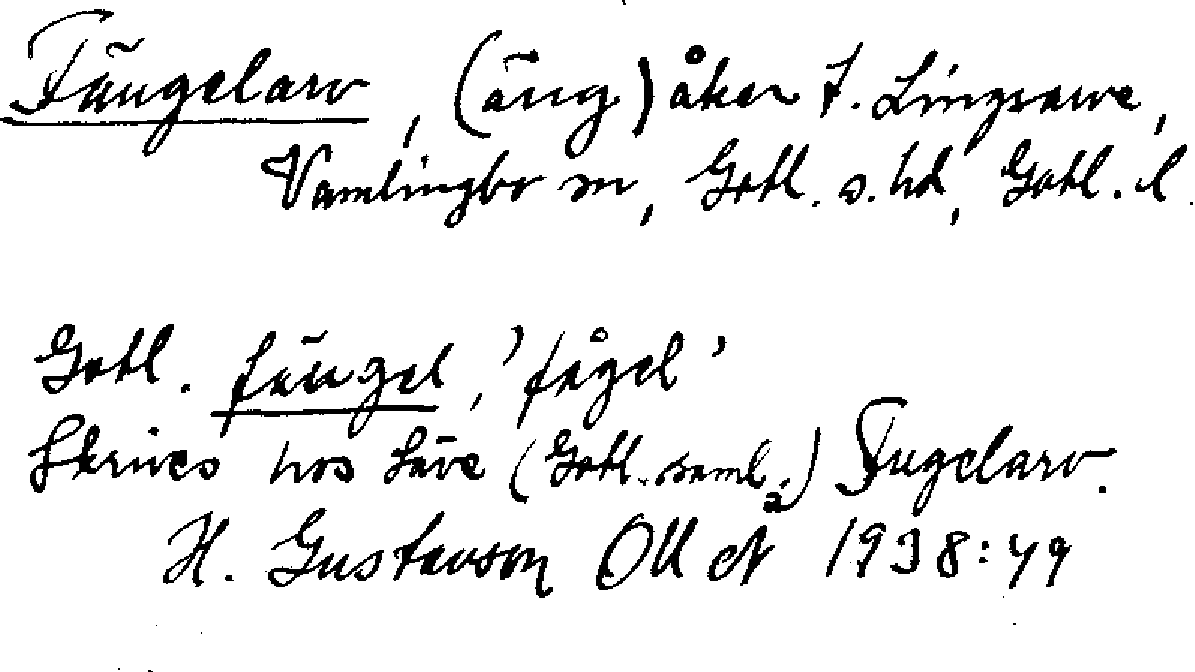 Fäugelarv, (äng) åker t. Lingsarve,
Vamlingbo sn, Gotl. s. hd, Gotl. l.
Gotl. fäugel, 'fågel'
Skrives hos Säve (Gotl. saml. 2) Fugelarv.
H. Gustavson OUÅ 1938:49